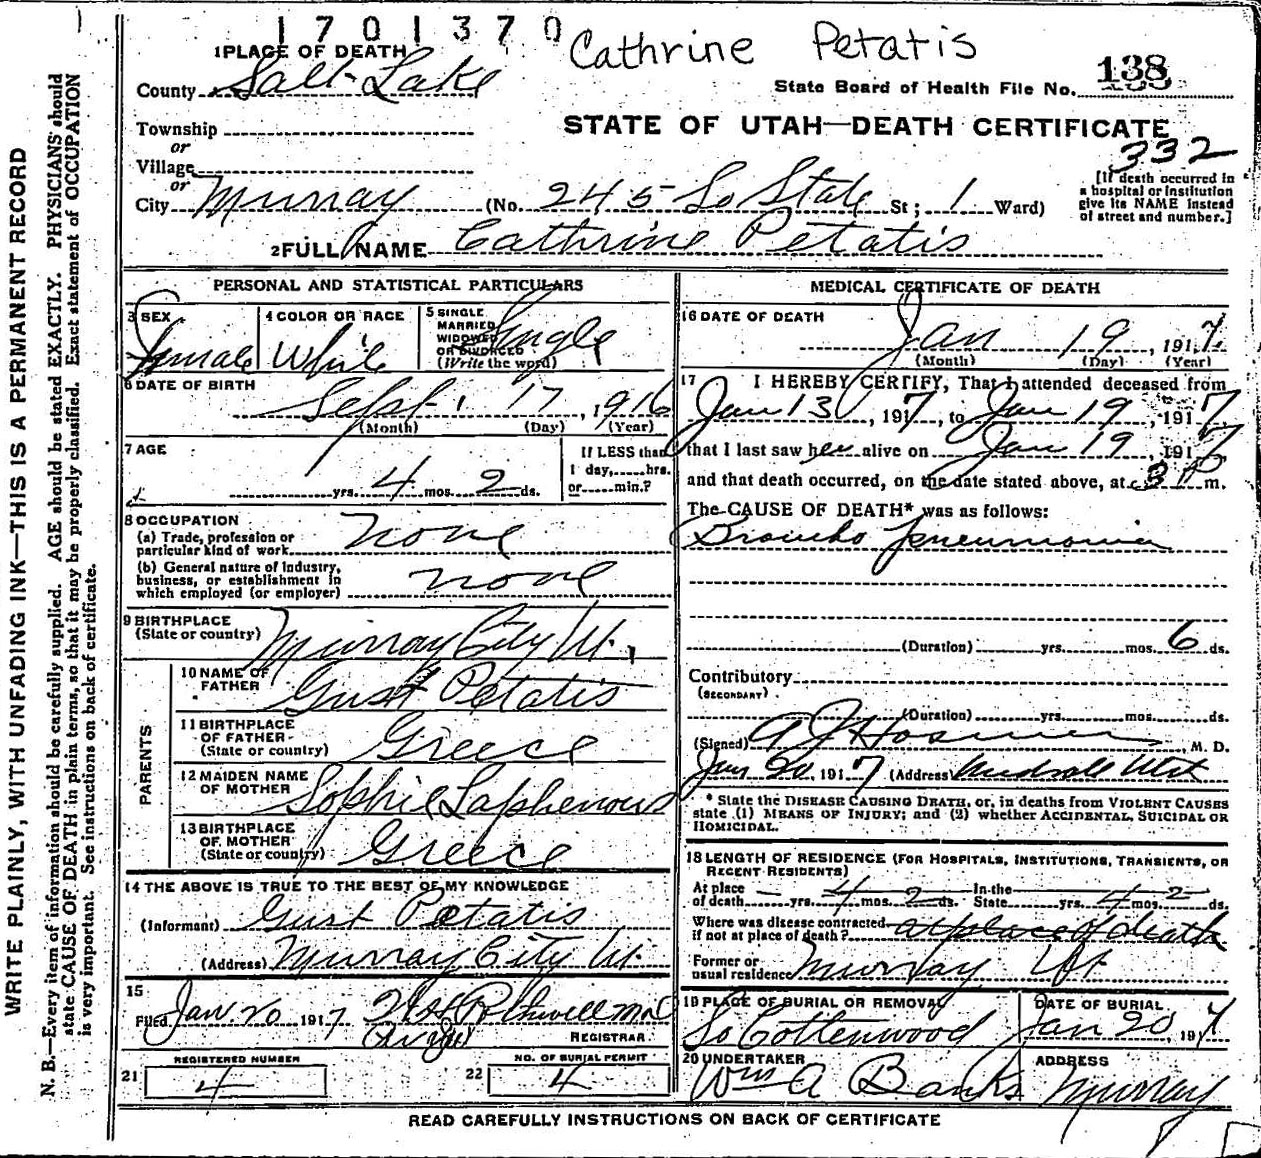 1701370
Cathrine Petatis
1 PLACE OF DEATH
County Salt Lake
State Board of Health File No. 138
Township
or
STATE OF UTAH—DEATH CERTIFICATE
332
Village
or
City Murray (No. 245 So State St; 1 Ward)
[If death occurred in a hospital or institution give its NAME instead of street and number.]
2 FULL NAME Cathrine Petatis
PERSONAL AND STATISTICAL PARTICULARS
3 SEX Female
4 COLOR OR RACE White
5 SINGLE MARRIED WIDOWED OR DIVORCED (Write the word) Single
6 DATE OF BIRTH
Sept. 17, 1916
(Month) (Day) (Year)
7 AGE
yrs. 4 mos. 2 ds.
If LESS than 1 day, hrs. or min.?
8 OCCUPATION
(a) Trade, profession or particular kind of work none
(b) General nature of industry, business, or establishment in which employed (or employer) none
9 BIRTHPLACE (State or country) Murray City Ut.
PARENTS
10 NAME OF FATHER Gust Petatis
11 BIRTHPLACE OF FATHER (State or country) Greece
12 MAIDEN NAME OF MOTHER Sophie
13 BIRTHPLACE OF MOTHER (State or country) Greece
14 THE ABOVE IS TRUE TO THE BEST OF MY KNOWLEDGE
(Informant) Gust Petatis
(Address) Murray City Ut.
15
Filed Jan. 20 1917
REGISTRAR
REGISTERED NUMBER
21 4
NO. OF BURIAL PERMIT
22 4
MEDICAL CERTIFICATE OF DEATH
16 DATE OF DEATH
Jan 19, 1917
(Month) (Day) (Year)
17 I HEREBY CERTIFY, That I attended deceased from
Jan 13, 1917, to Jan 19, 1917
that I last saw her alive on Jan 19, 1917
and that death occurred, on the date stated above, at 3 P m.
The CAUSE OF DEATH* was as follows:
Broncho Pneumonia
(Duration) yrs. mos. 6 ds.
Contributory
(SECONDARY)
(Duration) yrs. mos. ds.
(Signed) M. D.
Jan 20, 1917 (Address) Midvale Utah
* State the DISEASE CAUSING DEATH, or, in deaths from VIOLENT CAUSES state (1) MEANS OF INJURY; and (2) whether ACCIDENTAL, SUICIDAL OR HOMICIDAL.
18 LENGTH OF RESIDENCE (FOR HOSPITALS, INSTITUTIONS, TRANSIENTS, OR RECENT RESIDENTS)
At place of death yrs. 4 mos. 2 ds. In the State yrs. 4 mos. 2 ds.
Where was disease contracted if not at place of death? at place of death
Former or usual residence Murray Ut
19 PLACE OF BURIAL OR REMOVAL So Cottenwood
DATE OF BURIAL Jan 20, 1917
20 UNDERTAKER Wm A Banks
ADDRESS Murray
READ CAREFULLY INSTRUCTIONS ON BACK OF CERTIFICATE
WRITE PLAINLY, WITH UNFADING INK—THIS IS A PERMANENT RECORD
N. B.—Every item of information should be carefully supplied. AGE should be stated EXACTLY. PHYSICIANS should
state CAUSE OF DEATH in plain terms, so that it may be properly classified. Exact statement of OCCUPATION
is very important. See instructions on back of certificate.